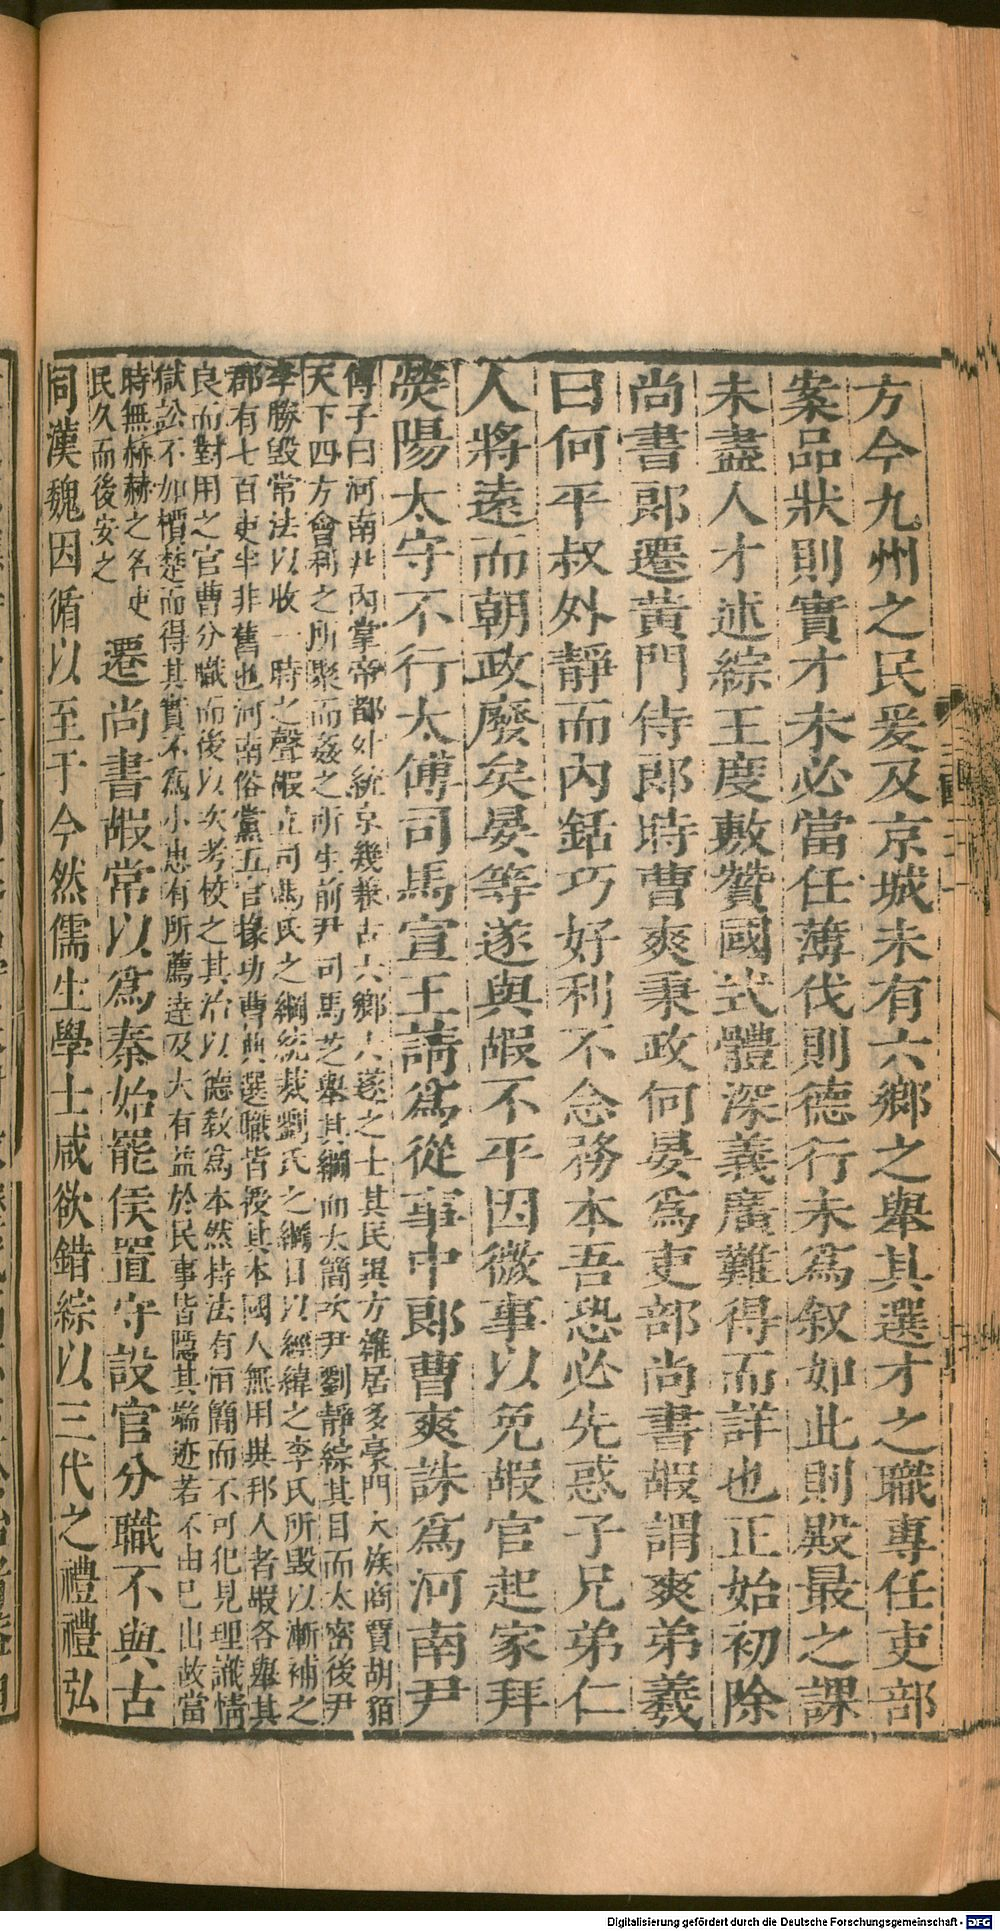 方今九州之民爰及京城未有六鄉之舉其選才之職專任吏部
案品狀則實才未必當任薄伐則德行未爲叙如此則殿最之課
未盡人才述綜王度敷贊國式體深義廣難得而詳也正始初除
尚書郎遷黃門侍郎時曹爽秉政何晏爲吏部尚書嘏謂爽弟羲
曰何平叔外靜而內銛巧好利不念務本吾恐必先惑子兄弟仁
人將遠而朝政廢矣晏等遂與嘏不平因微事以免嘏官起家拜
熒陽太守不行太傅司馬宣王請爲從事中郎曹爽誅爲河南尹
傅子曰河南尹內掌帝都外統京畿兼古六鄉六遂之士其民異方雜居多豪門大族商賈胡貊
天下四方會利之所聚而姦之所生前尹司馬芝舉其綱而太簡次尹劉靜綜其目而太密後尹
李勝毀常法以收一時之聲嘏立司馬氏之綱統裁劉氏之綱目以經緯之李氏所毀以漸補之
郡有七百吏半非舊也河南俗黨五官掾功曹典選職皆授其本國人無用異邦人者嘏各舉其
良而對用之官曹分職而後以次考校之其治以德敎爲本然持法有恒簡而不可犯見理識情
獄訟不加檟楚而得其實不爲小惠有所薦達及大有益於民事皆隱其端迹若不由已出故當
時無赫赫之名吏
民久而後安之
遷尚書嘏常以爲秦始罷侯置守設官分職不與古
同漢魏因循以至于今然儒生學士咸欲錯綜以三代之禮禮弘
Digitalisierung gefördert durch die Deutsche Forschungsgemeinschaft - DFG